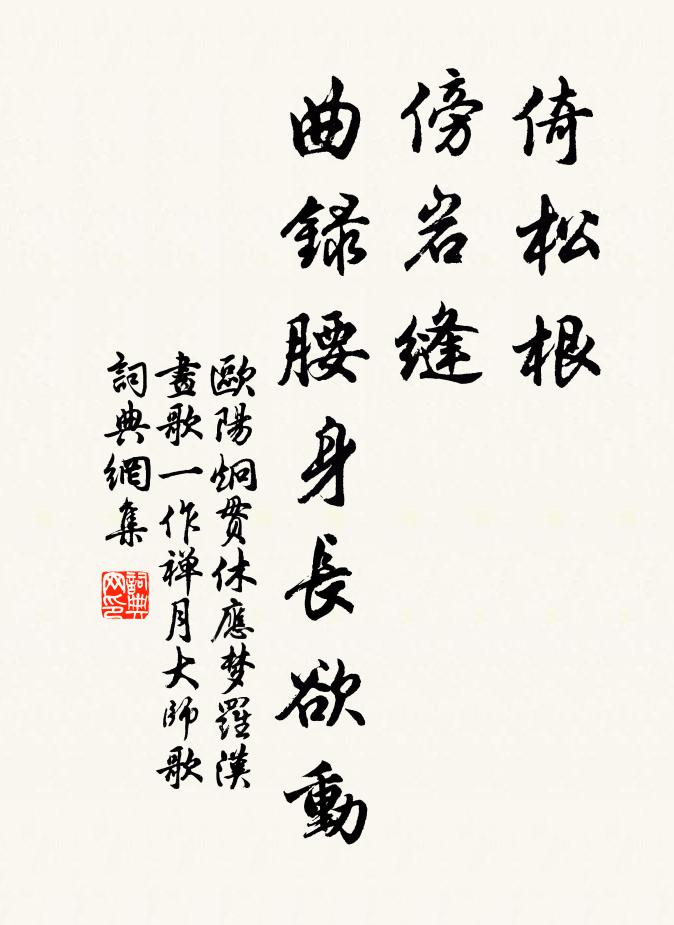 倚松根
傍岩縫
曲録腰身長欲動
歐陽炯貫休應梦羅漢
畫歌一作禅月大师歌
詞典網集
詞典
网印